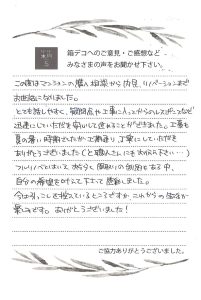 箱デコへのご意見・ご感想など
みなさまの声をお聞かせ下さい。
この度はマンションの購入相談から内見、リノベーションまで
お世話になりました。
とても話しやすく、疑問点や工事に入ってからのレスポンスなど
迅速にしていただき安心して進めることができました。工事も
夏の暑い時期でしたが工期通り、丁寧にしていただき
ありがとうございました(と職人さんにもお伝え下さい…)
フルリノベとはいえ、もともと間取りの制約もある中、
自分の希望を叶えて下さって感謝しました。
今は引っこしを控えているところですが、これからの生活が
楽しみです。ありがとうございました!
ご協力ありがとうございました。